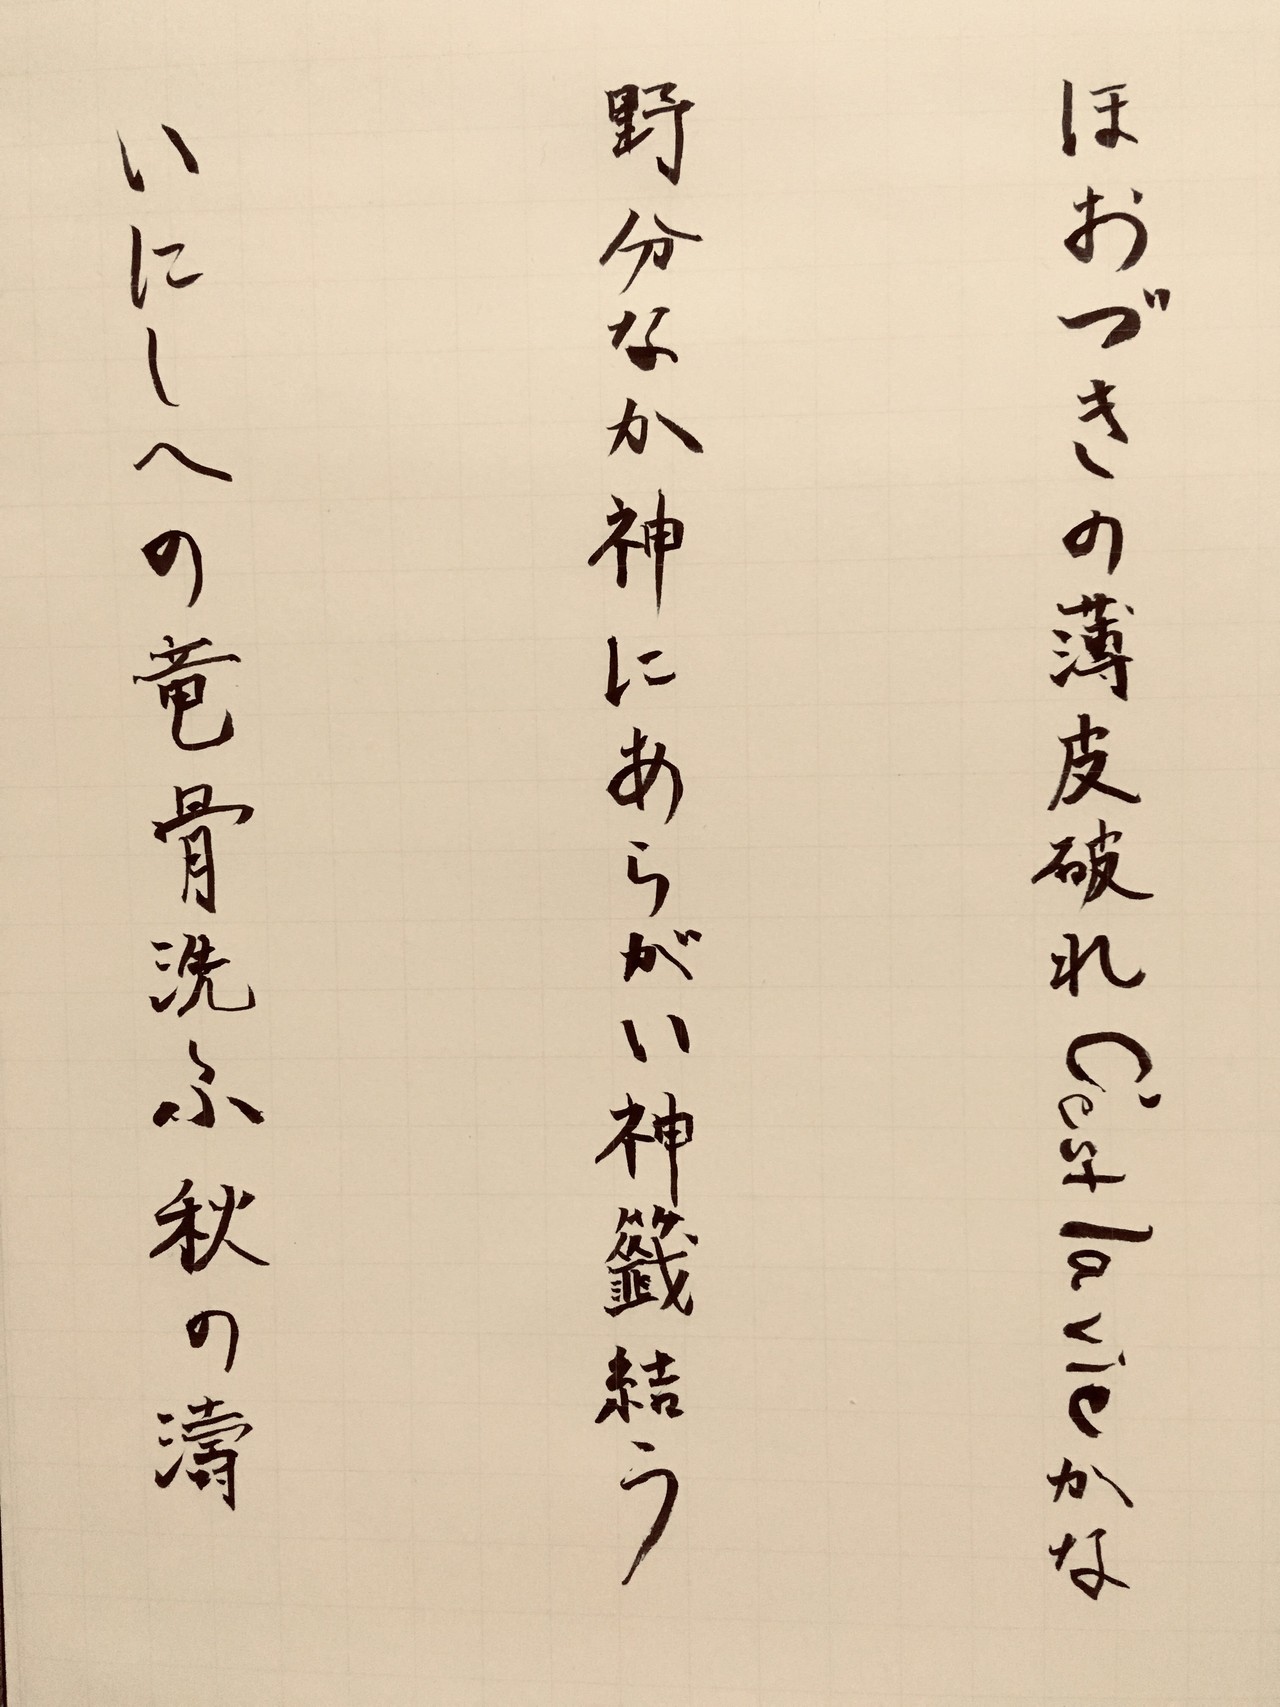 ほおづきの薄皮破れC'est la vieかな
野分なか神にあらがい神籤結う
いにしへの竜骨洗ふ秋の濤